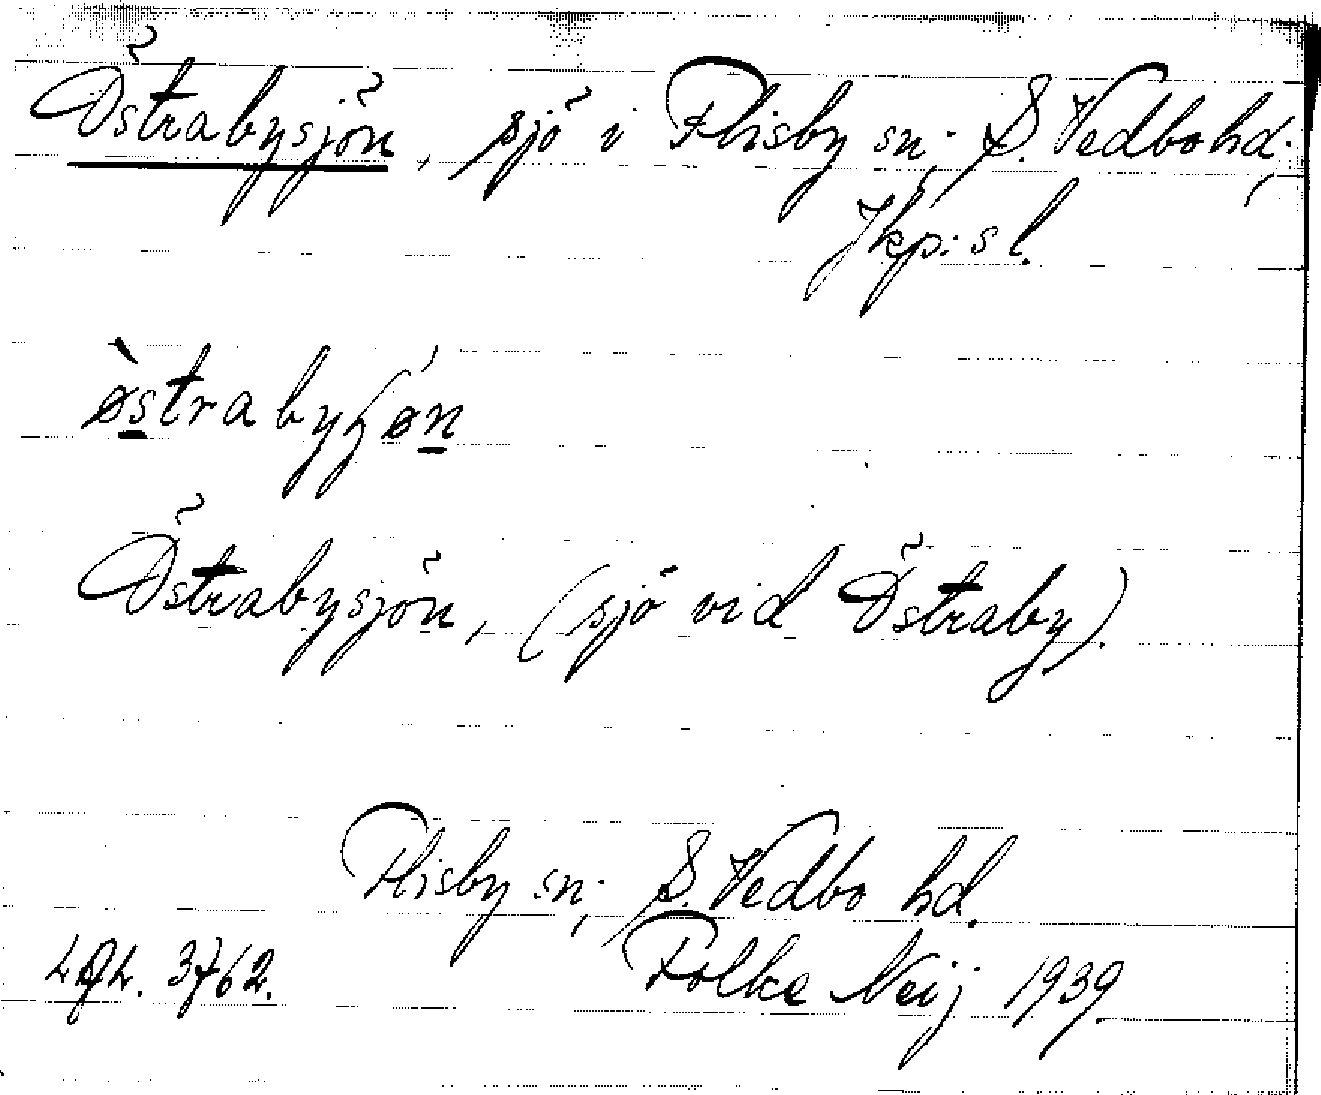 Östrabysjön, sjö i Flisby sn; S. Vedbo hd;
Jkp:s l.
østrabyʃøn
Östrabysjön, (sjö vid Östraby).
Flisby sn; S. Vedbo hd.
3762. Folke Neij 1939.